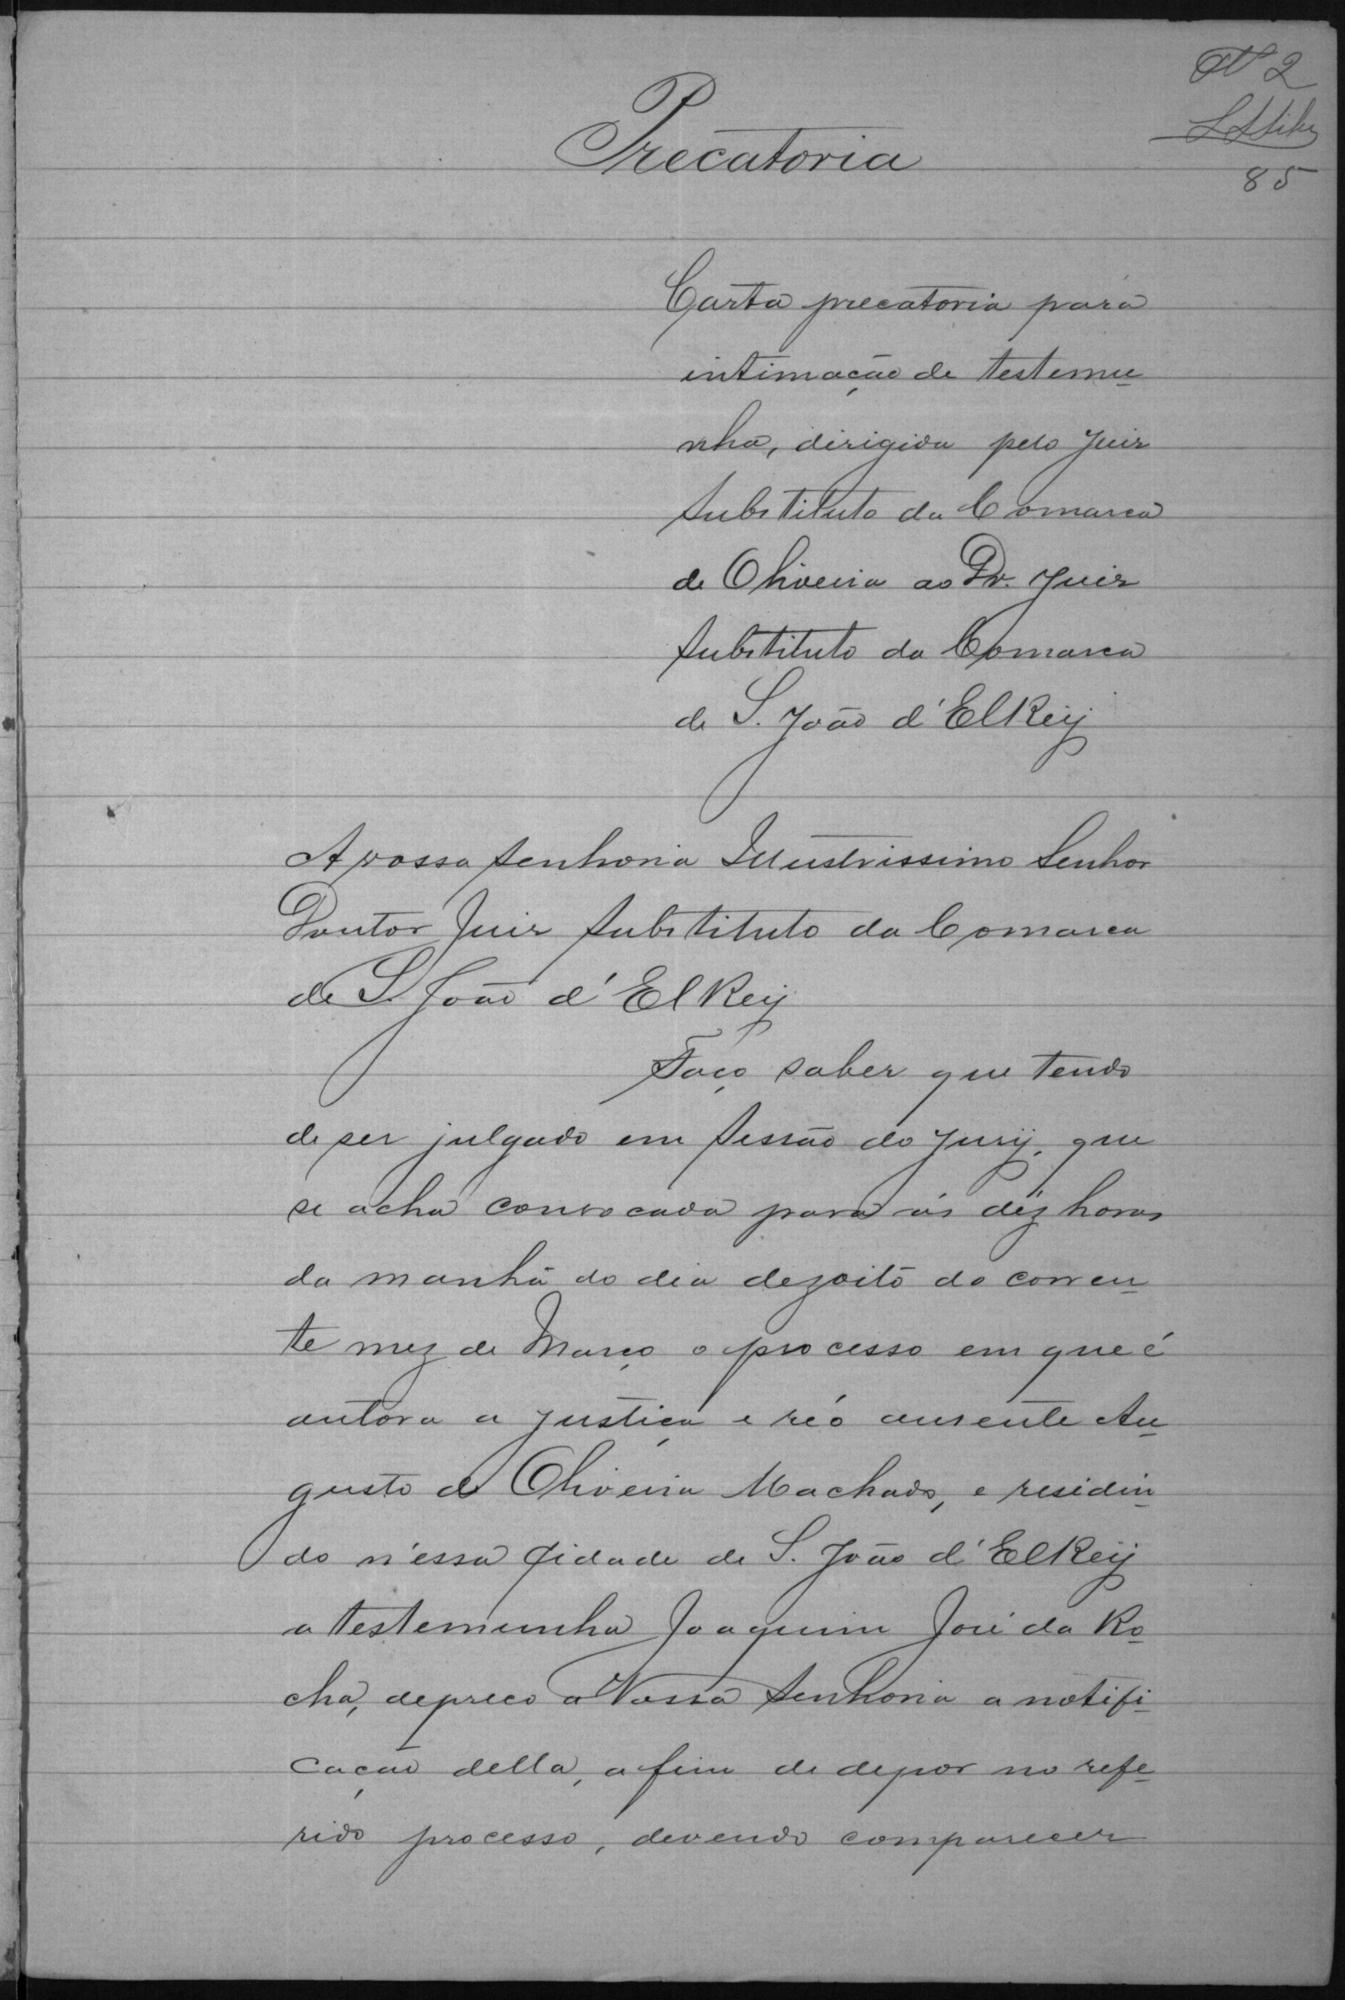 Nº 2
85
Precatoria
Carta precatoria para
intimação de testemu-
nha, dirigida pelo Juiz
Substituto da Comarca
de Oliveira ao Dr. Juiz
Substituto da Comarca
de S. João d'ElRey
A vossa Senhoria Illustrissimo Senhor
Doutor Juiz Substituto da Comarca
de S. João d'ElRey
Faço saber que tendo
de ser julgado em Sessão do Jury, que
se acha convocada para ás déz horas
da manhã do dia dezoito do corren-
te mez de Março o processo em que é
autora a Justiça e réo ausente Au-
gusto de Oliveira Machado, e residin-
do n'essa Cidade de S. João d'ElRey
a testemunha Joaquim José da Ro-
cha, depreco a Vossa Senhoria a notifi-
cação della, a fim de depor no refe-
rido processo, devendo comparecer